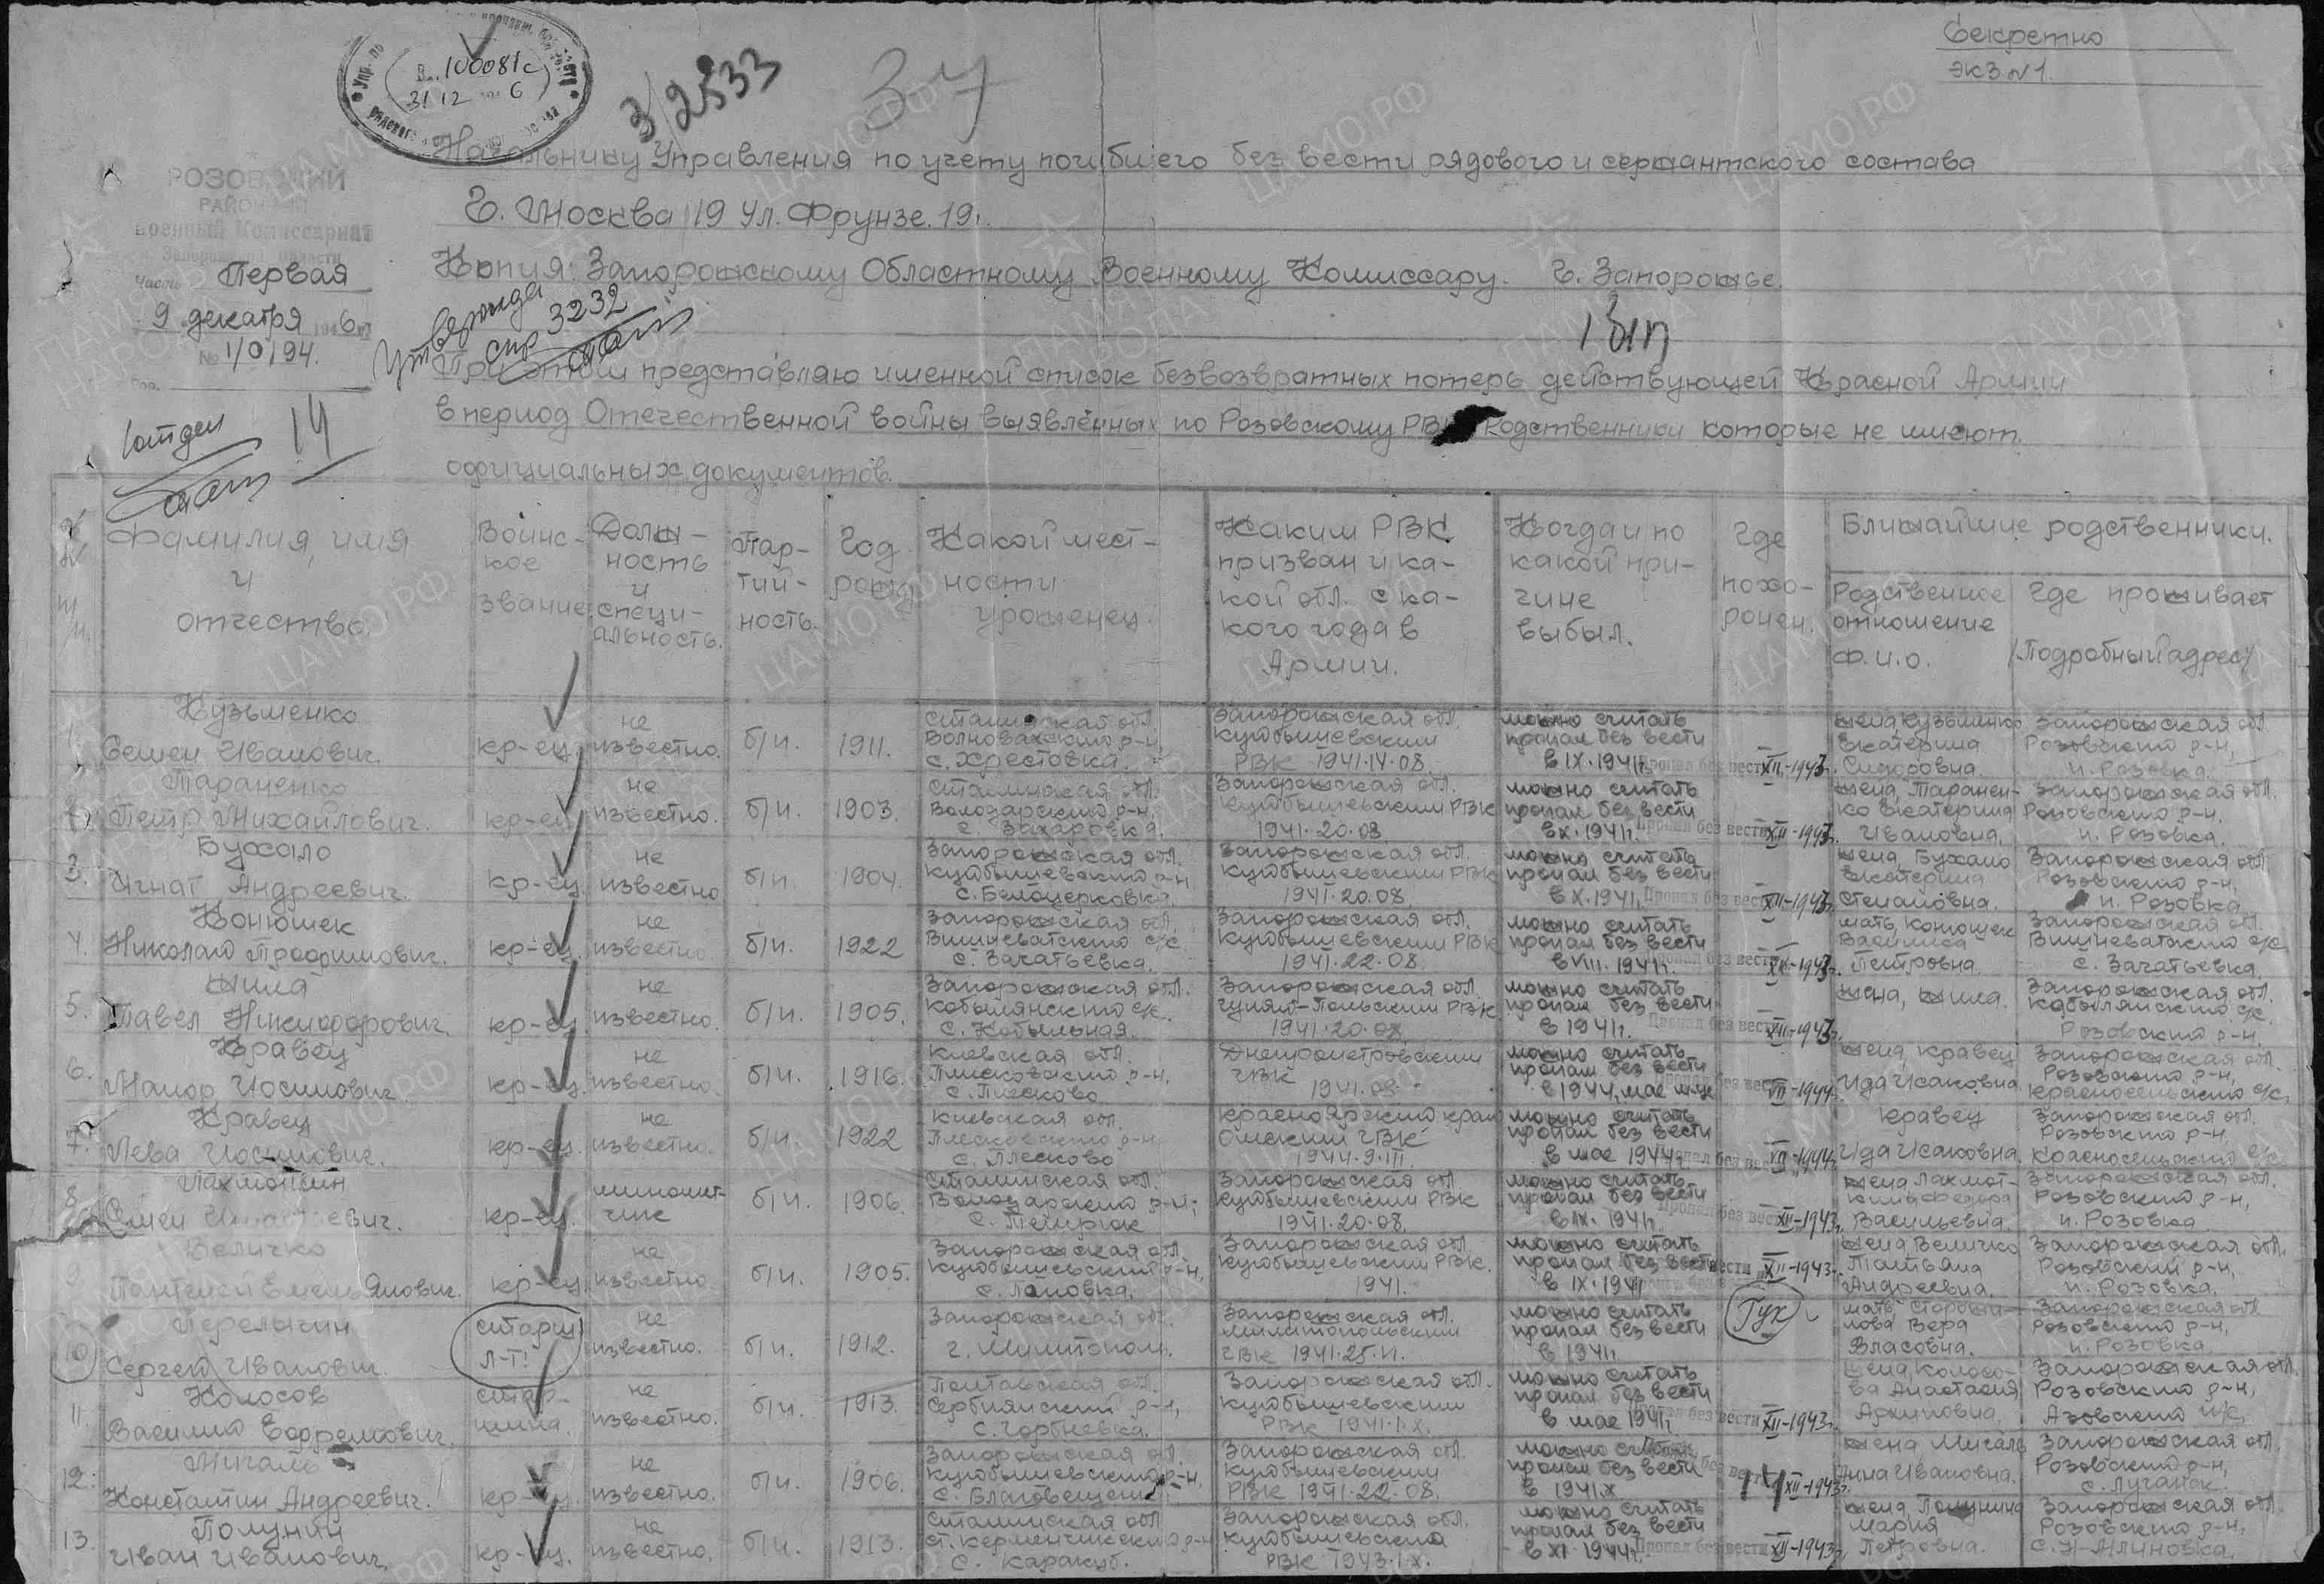 Секретно
Экз №1.
100081с
31 12 6
3/2533
34
Начальнику Управления по учету погибшего без вести рядового и сержантского состава
г. Москва 19 ул. Фрунзе. 19.
Копия: Запорожскому Областному Военному Комиссару. г. Запорожье.
РОЗОВСКИЙ
РАЙОННЫЙ
Военный Комиссариат
Запорожской Области
Часть Первая
9 декабря 1946 г.
№ 1/0194.
Гор.
3232
При этом представляю именной список безвозвратных потерь действующей Красной Армии
в период Отечественной войны выявленных по Розовскому РВК Родственники которые не имеют
официальных документов.
1 отдел
14
Фамилия, имя и отчество.
Воинское звание
Должность и специальность.
Партийность.
Год рожд
Какой местности уроженец.
Каким РВК призван и какой обл. с какого года в Армии.
Когда и по какой причине выбыл.
Где похоронен.
Ближайшие родственники.
Родственное отношение Ф.И.О.
Где проживает /Подробный адрес/
1. Кузьменко Семен Иванович. кр-ец. не известно. б/п. 1911. Сталинская обл. Волновахского р-н, с. Хрестовка. Запорожская обл. Куйбышевским РВК 1941.14.08. можно считать пропал без вести в IX.1941г. Пропал без вести XII-1943г. жена, Кузьменко Екатерина Сидоровна. Запорожская обл. Розовского р-н, п. Розовка.
2. Тараненко Петр Михайлович. кр-ец не известно. б/п. 1903. Сталинская обл. Володарского р-н, с. Захаровка. Запорожская обл. Куйбышевским РВК 1941.20.08. можно считать пропал без вести в X.1941г. Пропал без вести XII-1943г. жена, Тараненко Екатерина Ивановна. Запорожская обл. Розовского р-н. п. Розовка.
3. Бухало Игнат Андреевич. кр-ец не известно б/п. 1904. Запорожская обл. Куйбышевского р-н с. Белоцерковка. Запорожская обл. Куйбышевским РВК 1941.20.08. можно считать пропал без вести в X.1941г. Пропал без вести XII-1943г. жена, Бухало Екатерина Степановна. Запорожская обл. Розовского р-н, п. Розовка
4. Конюшек Николай Трофимович. кр-ец. не известно. б/п. 1922 Запорожская обл. Вишневатского с/с. с. Зачатьевка. Запорожская обл. Куйбышевским РВК 1941.22.08. можно считать пропал без вести в VIII.1941г. Пропал без вести XII-1943г. мать, Конюшек Василиса Петровна. Запорожская обл. Вишневатского с/с, с. Зачатьевка.
5. Жила Павел Никифорович. кр-ец. не известно. б/п. 1905. Запорожская обл. Кобылянского с/с. с. Кобыльная. Запорожская обл. Гуляй-Польским РВК 1941.20.08 можно считать пропал без вести в 1941г. Пропал без вести XII-1943г. жена, Жила. Запорожская обл. Кобылянского с/с. Розовского р-н.
6. Кравец Иосипович. кр-ец. не известно. б/п. 1916. Киевская обл. Плисковского р-н, с. Плисково Днепропетровским ГВК 1941.08. можно считать пропал без вести в 1944, мае м-це VII-1944г. жена, Кравец Ида Исаковна Запорожская обл. Розовского р-н, Красносельского с/с,
7. Кравец Лева Иосипович. кр-ец. не известно. б/п. 1922 Киевская обл. Плесковского р-н с. Плесково Красноярский край Омским ГВК 1944.9.III. можно считать пропал без вести в мае 1944г. VII-1944г. Кравец Ида Исаковна. Запорожская обл. Розовского р-н, Красносельского с/с.
8. Семен кр-ец. минометчик б/п. 1906. Сталинская обл. Володарского р-н; с. Темрюк Запорожская обл. Куйбышевским РВК 1941.20.08. можно считать пропал без вести в IX.1941г. Пропал без вести XII-1943г. Васильевна. Запорожская обл. Розовского р-н, п. Розовка
9. Величко Пантелей Емельянович. кр-ец не известно. б/п. 1905. Запорожская обл. Куйбышевский р-н, Запорожская обл. Куйбышевским РВК. 1941. можно считать пропал без вести в IX.1941 XII-1943г. жена, Величко Татьяна Андреевна. Запорожская обл. Розовский р-н, п. Розовка.
10 Перелыгин Сергей Иванович. старш. л-т! не известно. б/п. 1912. Запорожская обл. г. Мелитополь. Запорожская обл. Мелитопольским ГВК 1941.25. можно считать пропал без вести в 1941г. ГУК мать, Вера Власовна. Запорожская обл Розовского р-н, п. Розовка.
11. Колосов Василий Ефремович. старшина. не известно. б/п. 1913. Полтавская обл. р-н, с. Горбневка. Запорожская обл. Куйбышевским РВК 1941.1.X. можно считать пропал без вести в мае 1941г. XII-1943г. жена, Колосова Анастасия Архиповна. Запорожская обл. Розовского р-н, Азовского с/с,
12. Мигаль Константин Андреевич. кр-ец. не известно. б/п. 1906. Запорожская обл. Куйбышевского р-н. с. Благовещенка Запорожская обл. Куйбышевским РВК 1941.22.08. можно считать пропал без вести в 1941.X XII-1943г. жена, Мигаль Анна Ивановна. Запорожская обл. Розовского р-н, с. Луганск.
13. Полунин Иван Иванович. кр-ец. не известно. б/п. 1913. Сталинская обл Ст. Керменчикского р-н с. Каракуб. Запорожская обл. Куйбышевского РВК 1943.1.X. можно считать пропал без вести в XI.1944г. Пропал без вести XII-1943г. жена, Полунина Мария Петровна. Запорожская обл. Розовского р-н,